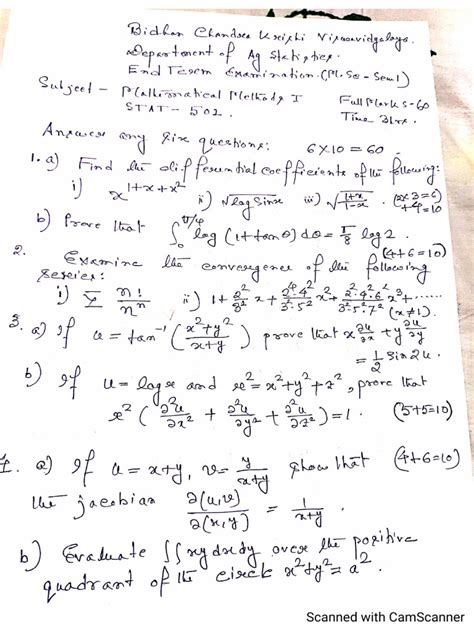 Bidhan Chandra Krishi Viswavidyalaya.
Department of Ag Statistics.
End Term Examination. (M.Sc - Sem 1)
Subject - Mathematical Methods I
STAT - 502.
Full Marks - 60
Time 3hrs.
Answer any six questions: 6×10 = 60
1. a) Find the differential coefficients of the following:
i) x^{1+x+x²} ii) √(log sinx) iii) √((1+x)/(1-x)) (2×3=6) +4=10
b) Prove that ∫₀^{π/4} log (1+tanθ) dθ = π/8 log 2.
2. Examine the convergence of the following (4+6=10)
series:
i) Σ n!/n^n ii) 1 + 2²/3² x + 2²·4²/3²·5² x² + 2²·4²·6²/3²·5²·7² x³ + ...... (x≠1).
3. a) If u = tan⁻¹ ((x²+y²)/(x+y)) prove that x ∂u/∂x + y ∂u/∂y
= 1/2 Sin 2u.
b) If u = log r and r² = x²+y²+z², prove that
r² (∂²u/∂x² + ∂²u/∂y² + ∂²u/∂z²) = 1. (5+5=10)
a) If u = x+y, v = y/(x+y) show that (4+6=10)
the jacobian ∂(u,v)/∂(x,y) = 1/(x+y).
b) Evaluate ∫∫xydxdy over the positive
quadrant of the circle x²+y² = a².
Scanned with CamScanner